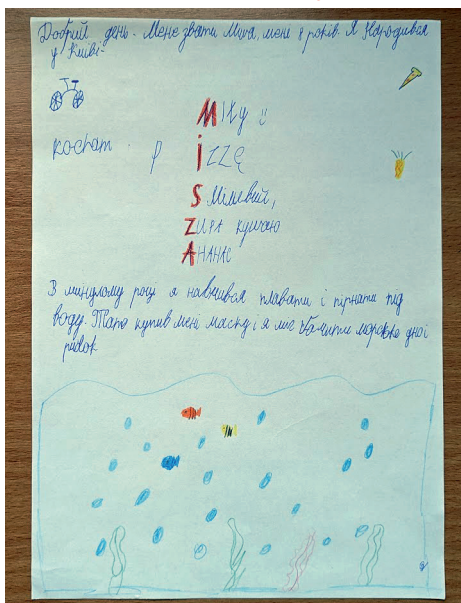 Добрий день. Мене звати Миша, мені 8 років. Я Народився
у Києві.
Міку
кохат р izzę
S мілевий,
ZUPA кушаю
АНАНАС
В минулому році я навчився плавати і пірнати під
воду. Тато купив мені маску і я міг бачити морське дно і
рибок